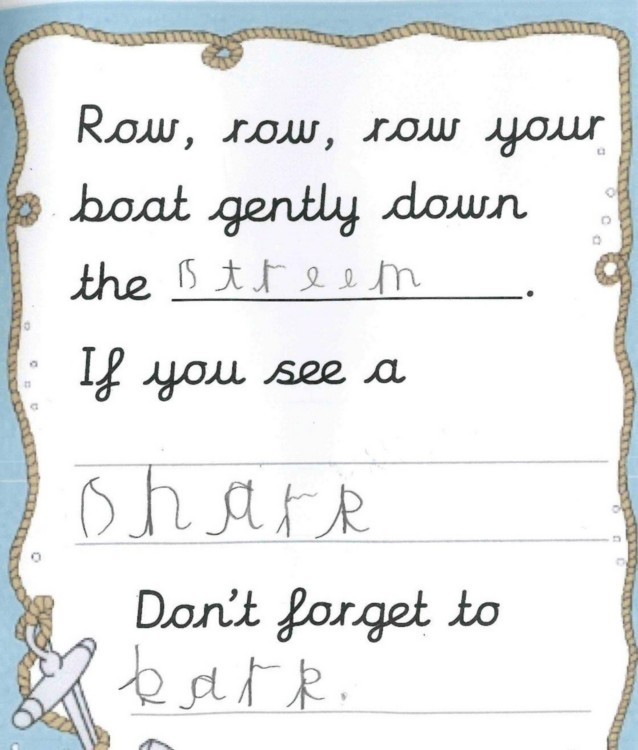 Row, row, row your
boat gently down
the streem.
If you see a
shark
Don't forget to
bark.